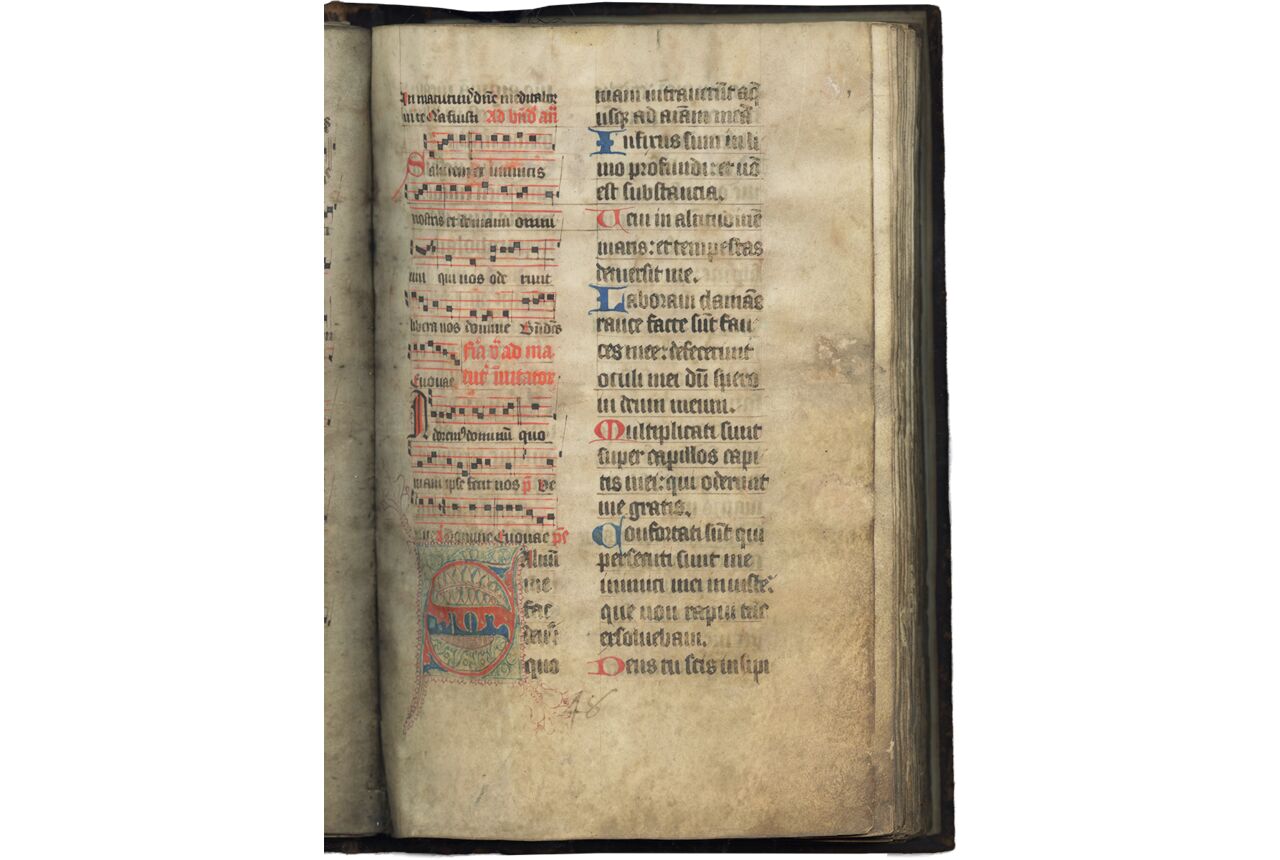 In matutinis dñe meditabor
in te Ṽ Ora iusti Ad bñd añ
Salutem ex inimicis
nostris et de manu omni
um qui nos ode runt
libera nos domine Bñdcs
Euouae f̃ia ṽ ad ma
tut̃ inuitator
Adorem⁹ dominũ quo
niam ipse fecit nos p̃ Ve
Euouae ps̃
Aluũ
me
fac
deus
quo
niam intrauerũt aq̃
usq; ad aĩam meã
Infixus sum in li
mo profundi: et nõ
est substancia.
Ueni in altitudinẽ
maris: et tempestas
demersit me.
Laboraui clamãs
rauce facte sũt fau
ces mee: defecerunt
oculi mei dũ spero
in deum meum.
Multiplicati sunt
super capillos capi
tis mei: qui oderunt
me gratis.
Confortati sũt qui
persecuti sunt me
inimici mei iniuste:
que non rapui tũc
exsoluebam.
Deus tu scis insipi
48